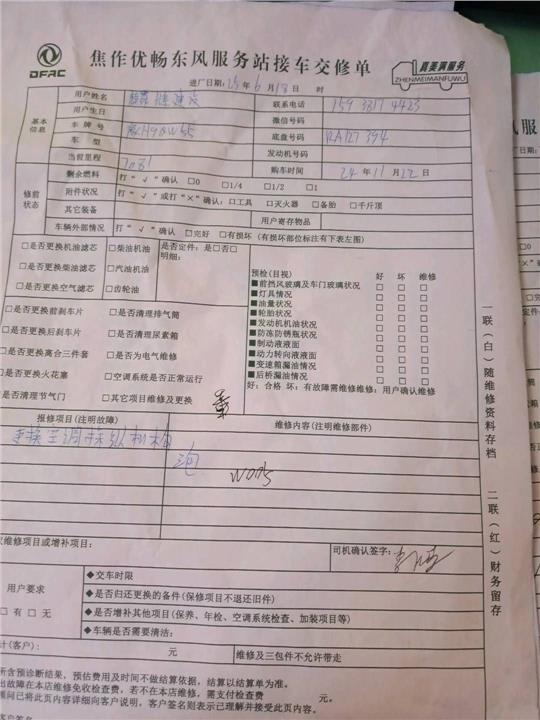 DFAC
焦作优畅东风服务站接车交修单
真美满服务
ZHENMEIMANFUWU
进厂日期: 25年 6月 18日 时
基本信息
用户姓名
联系电话 159 3817 4423
用户生日
微信号码
车牌号
底盘号码 RA127394
车型
发动机号码
当前里程 7081
购车时间 24年 11月 22日
修前状态
剩余燃料 打“√”确认 □0 □1/4 □1/2 □1
附件状况 打“√”或打“×”确认: □工具 □灭火器 □备胎 □千斤顶
其它装备 用户寄存物品
车辆外部情况 打“√”确认 □完好 □有损坏（有损坏部位标注有下表左图）
□是否更换机油滤芯 □柴油机油 是否定件: 是□否□
明细:
□是否更换柴油滤芯 □汽油机油
□是否更换空气滤芯 □齿轮油
预检(目视) 好 坏 维修
■前挡风玻璃及车门玻璃状况 □ □ □
■灯具情况 □ □ □
■油量状况 □ □ □
■轮胎状况 □ □ □
■发动机机油状况 □ □ □
■防冻防锈瓶状况 □ □ □
■制动液液面 □ □ □
■动力转向液液面 □ □ □
■变速箱漏油情况 □ □ □
■后桥漏油情况 □ □ □
好: 合格 坏: 有故障需维修维修: 用户确认维修
□是否更换前刹车片 □是否清理排气筒
□是否更换后刹车片 □是否清理尿素箱
□是否更换离合三件套 □是否为电气维修
□是否更换火花塞 □空调系统是否正常运行
是否清理节气门 □其它项目维修及更换
报修项目(注明故障) 维修内容(注明维修部件)
更换空调操纵机构
W005
维修项目或增补项目:
司机确认签字:
用户要求
□有 □无
◆交车时限
◆是否归还更换的备件(保修项目不退还旧件)
◆是否增补其他项目(保养、年检、空调系统检查、加装项目等)
◆车辆是否需要清洁:
计(客户): 元 维修及三包件不允许带走
所含预诊断结果，预估费用及时间不做结算依据，结算以结算单为准。
出故障在本店维修免收检查费，若不在本店维修，需支付检查费 元。
顾问已将此页内容详细向客户说明，客户签名则表示已理解并接受此页内容。
客户签名
一联(白)随维修资料存档 二联(红)财务留存